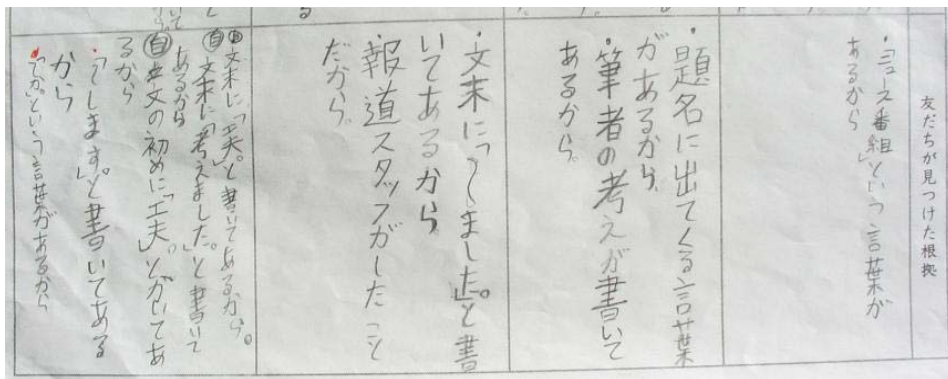 友だちが見つけた根拠
・「ニュース番組」という言葉が
あるから
・題名に出てくる言葉
があるから。
・筆者の考えが書いて
あるから。
る
・文末に「〜ました。」と書
いてあるから
・報道スタッフがした こと
だから。
自文末に「工夫。」と書いてあるから。
自文末に「考えました。」と書いて
あるから
自文の初めに「工夫」。とかいてあ
るから
・「〜します。」と書いてある
から
・「でか」という言葉があるから